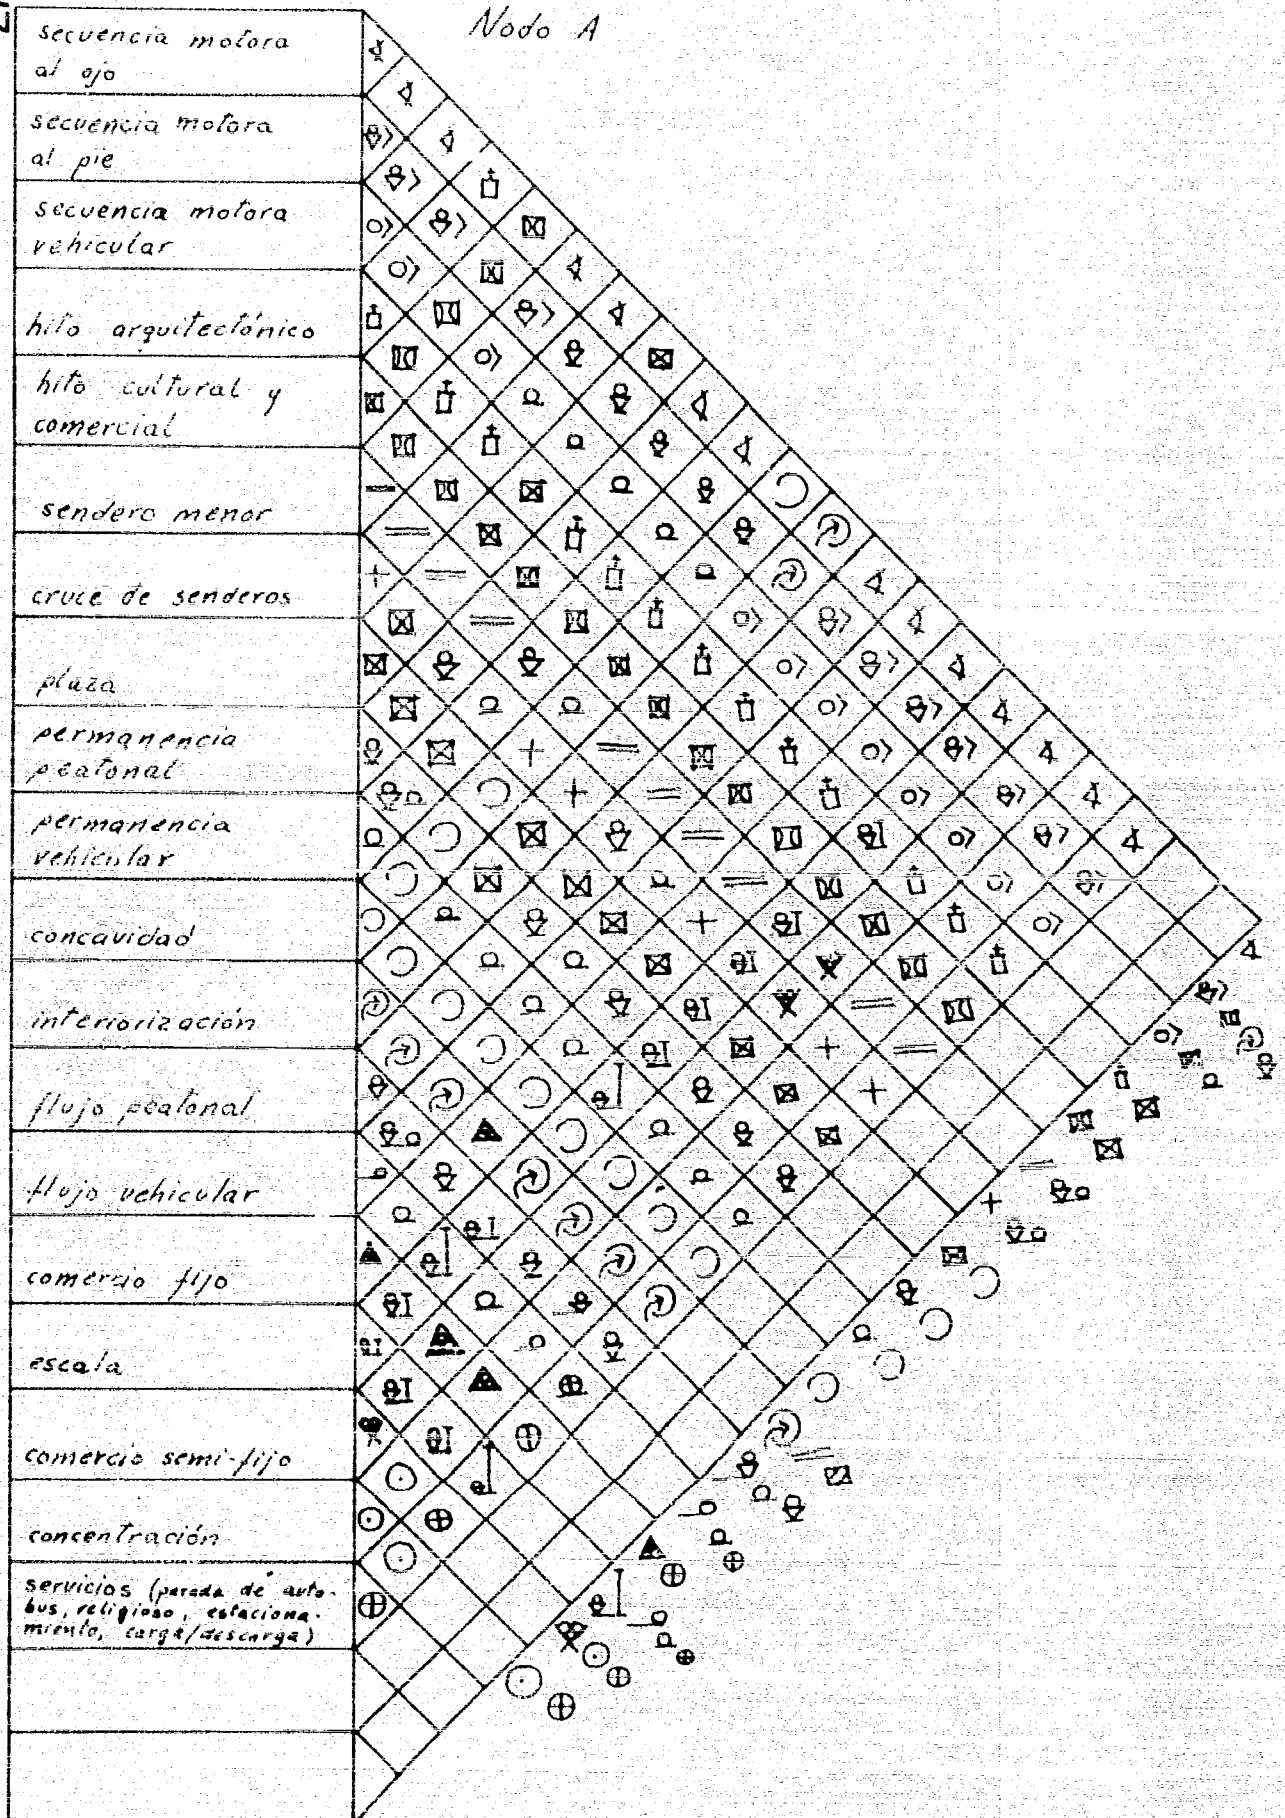 Nodo A
secuencia motora
al ojo
secuencia motora
al pie
secuencia motora
vehicular
hito arquitectónico
hito cultural y
comercial
sendero menor
cruce de senderos
plaza
permanencia
peatonal
permanencia
vehicular
concavidad
interiorización
flujo peatonal
flujo vehicular
comercio fijo
escala
comercio semi-fijo
concentración
servicios (parada de auto-
bus, religioso, estaciona-
miento, carga/descarga)